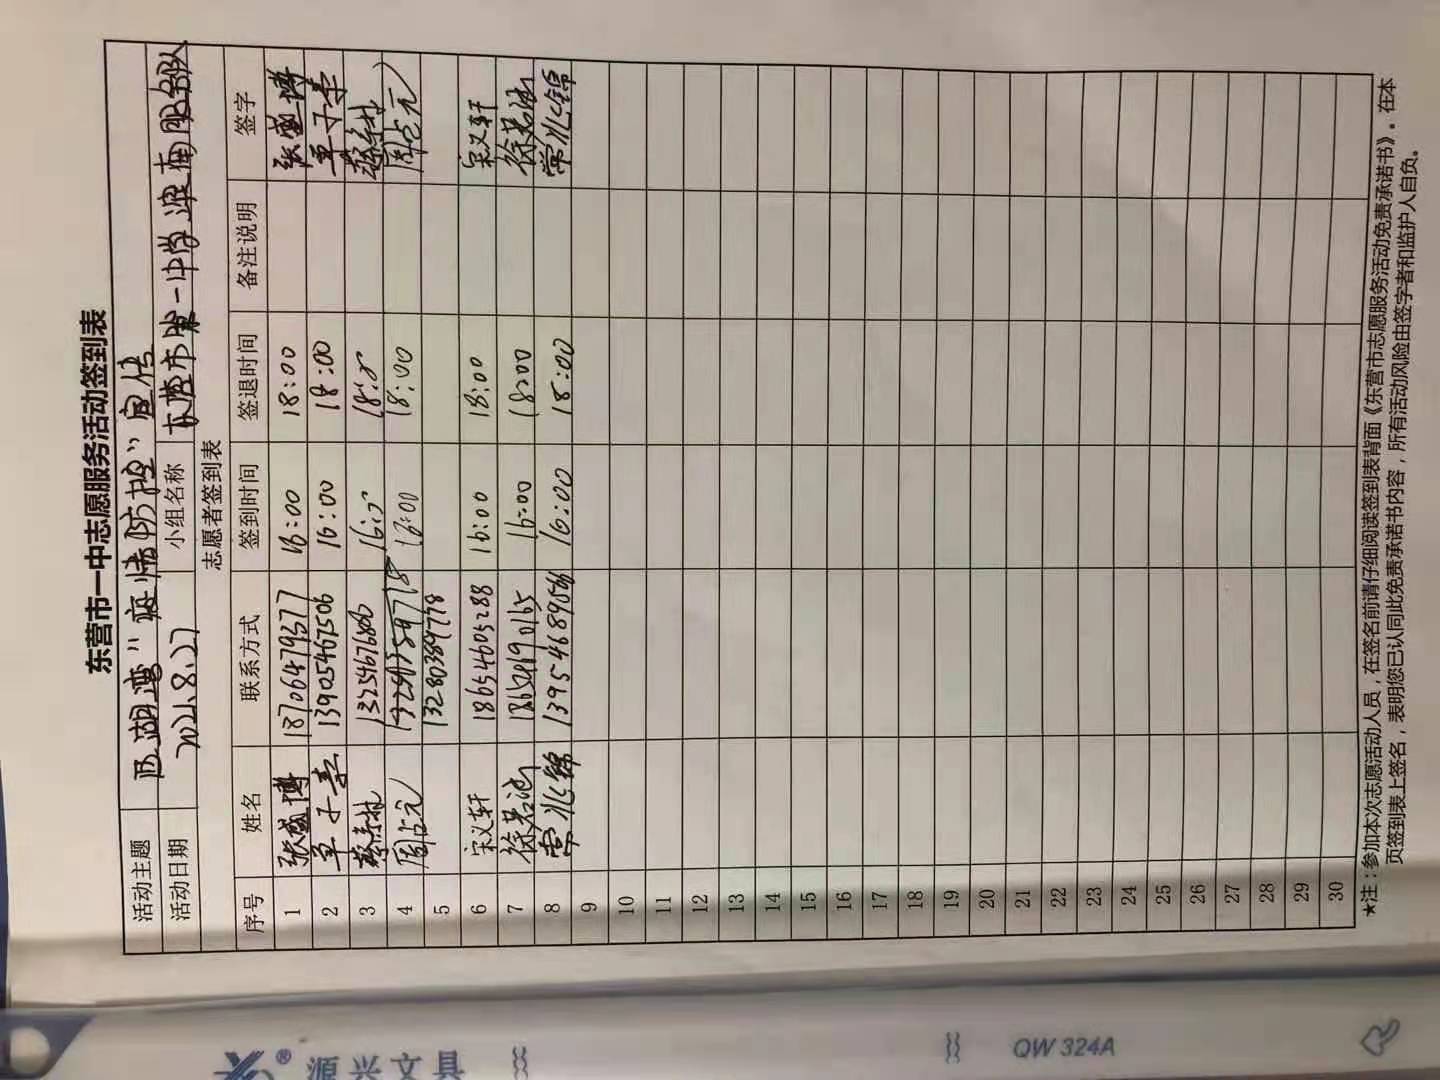 东营市一中志愿服务活动签到表
活动主题 西湖湾“疫情防控”宣传
活动日期 2021.8.27 小组名称 东营市第一中学 服务队
志愿者签到表
序号 姓名 联系方式 签到时间 签退时间 备注说明 签字
1 张盛博 18706479377 16:00 18:00 张盛博
2 单子 13905467506 16:00 18:00 单子
3 13254676806
4 周占元 16:00 18:00 周占元
5 13280389778
6 宋义轩 18654605288 16:00 18:00 宋义轩
7 徐若 16:00 18:00 徐若
8 常兆锦 13954689056 16:00 18:00 常兆锦
9
10
11
12
13
14
15
16
17
18
19
20
21
22
23
24
25
26
27
28
29
30
★注：参加本次志愿活动人员，在签名前请仔细阅读签到表背面《东营市志愿服务活动免责承诺书》。在本
页签到表上签名，表明您已认同此免责承诺书内容，所有活动风险由签字者和监护人自负。
® 源兴文具
QW 324A